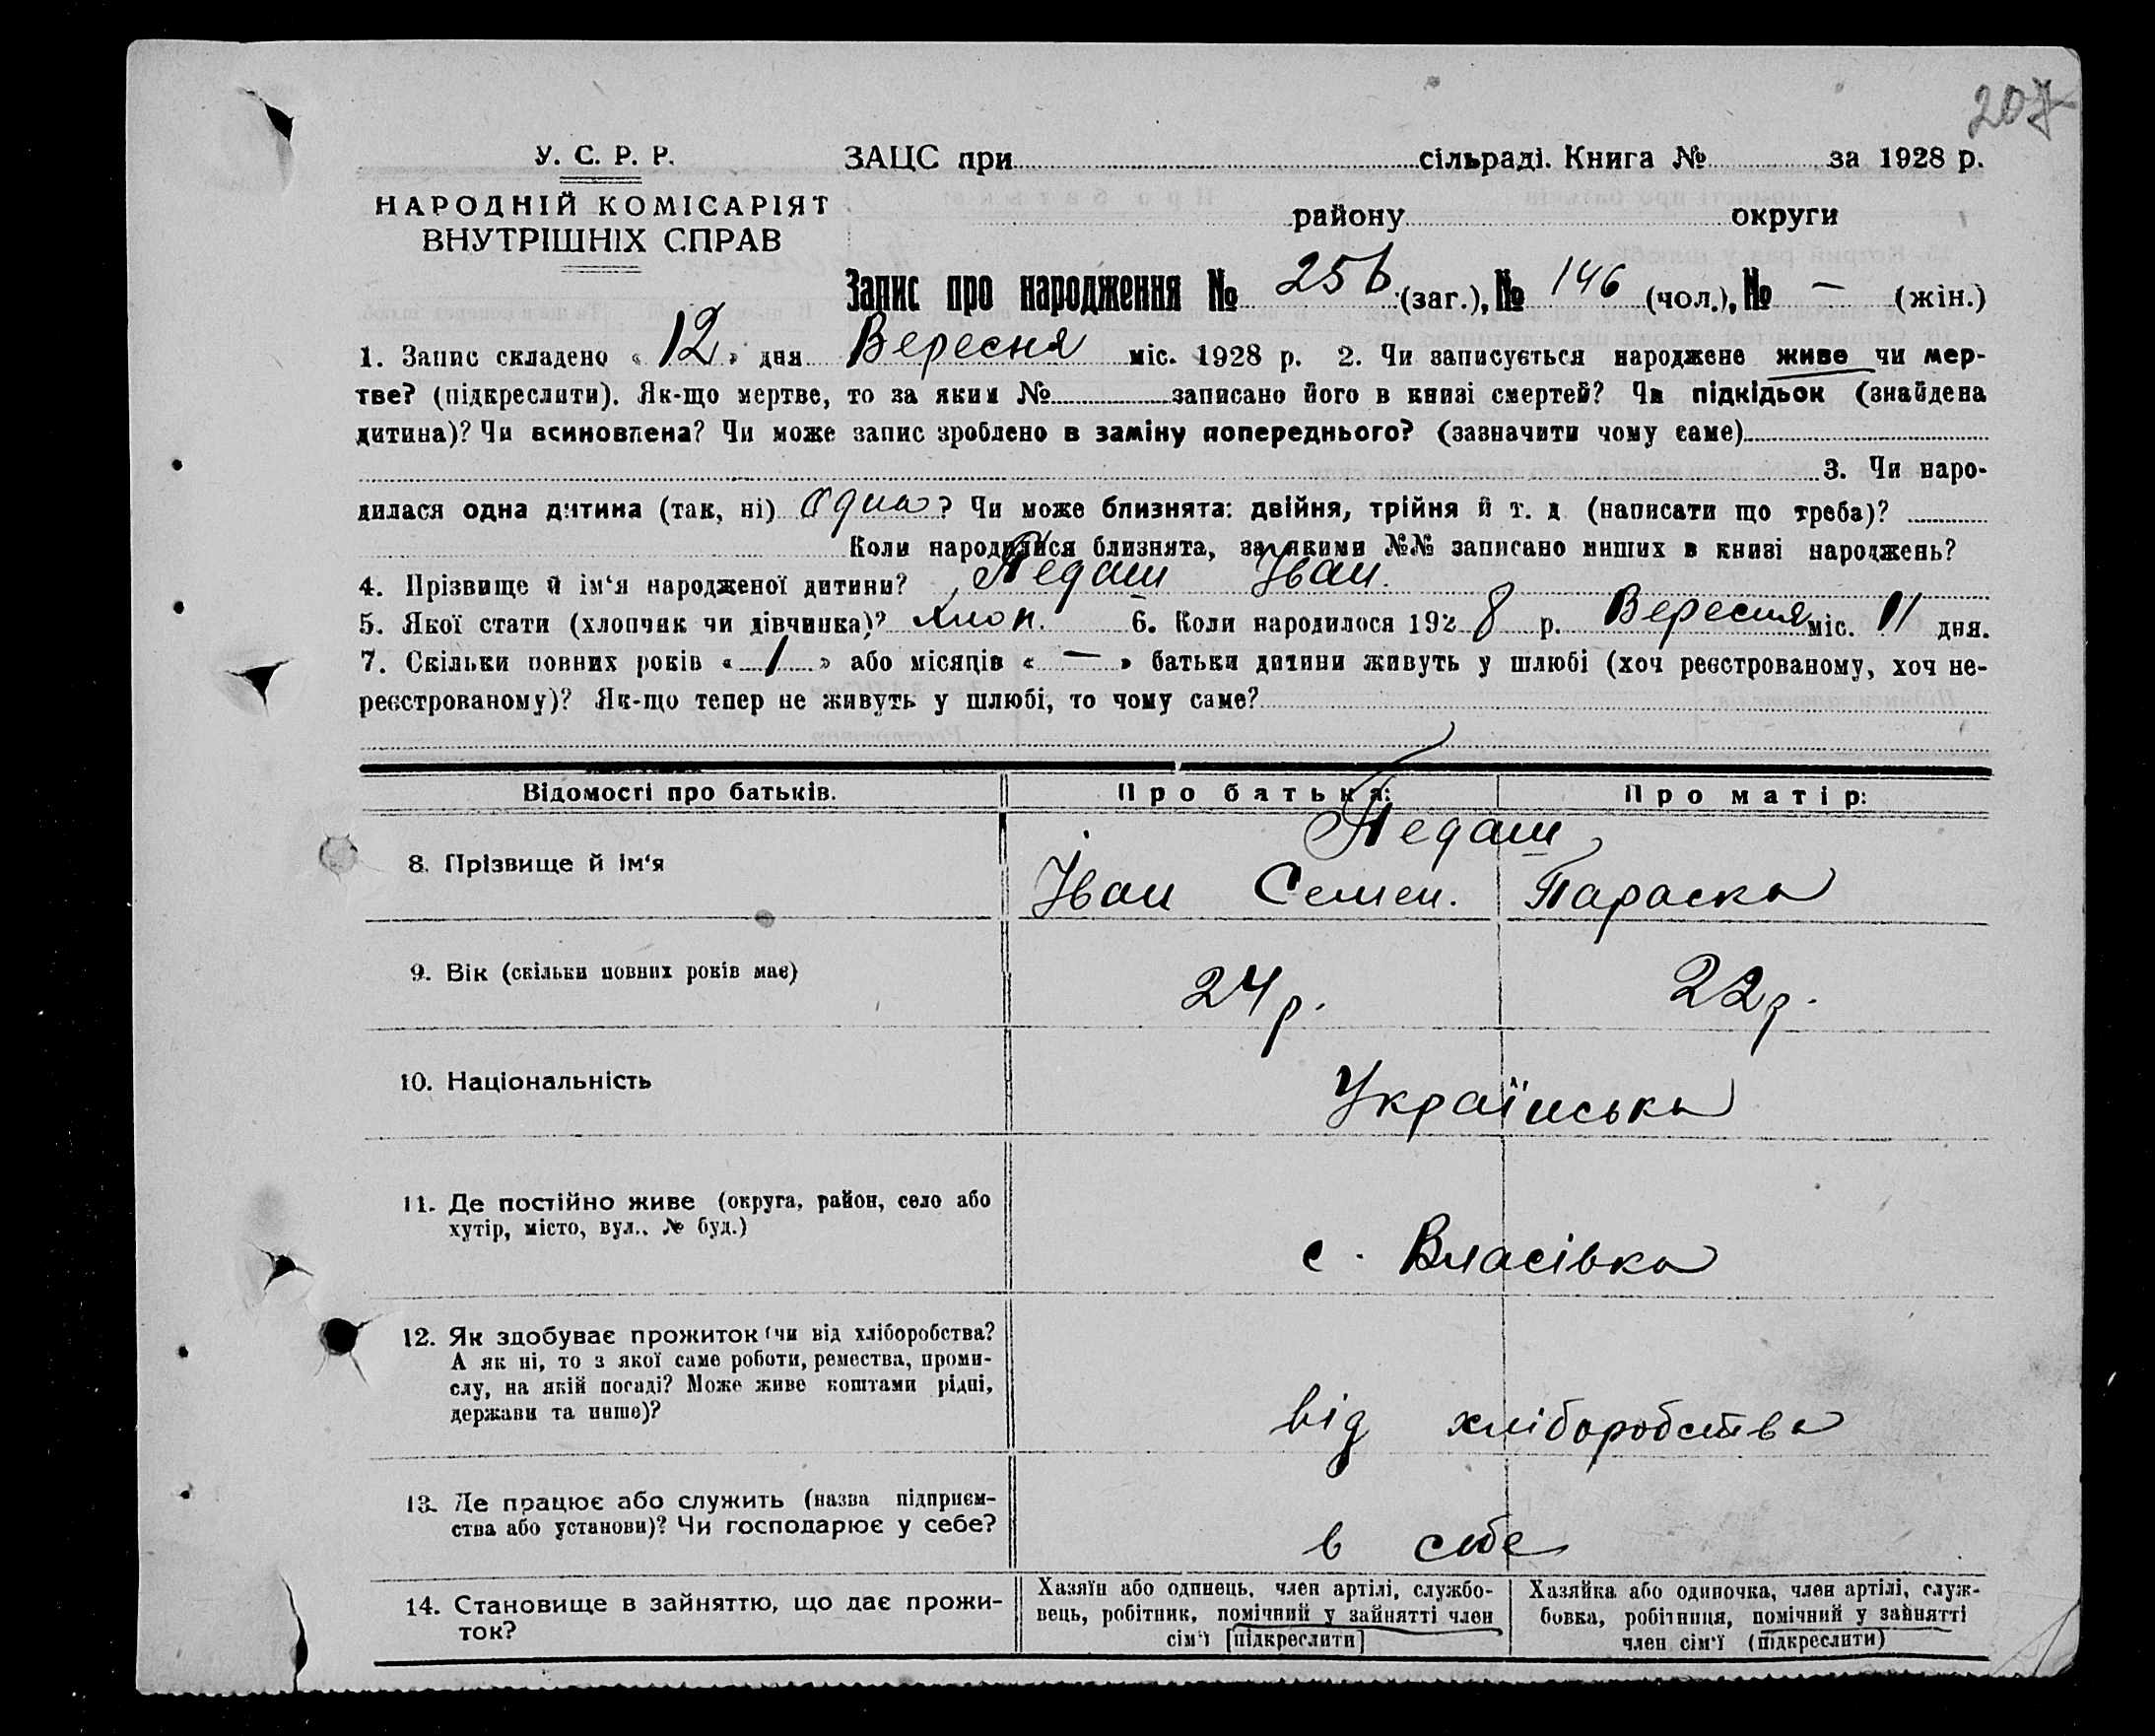 207
У. С. Р. Р.
НАРОДНІЙ КОМІСАРІЯТ
ВНУТРІШНІХ СПРАВ
ЗАЦС при сільраді. Книга № за 1928 р.
району округи
Запис про народження № 256 (заг.), № 146 (чол.), № — (жін.)
1. Запис складено « 12 » дня Вересня міс. 1928 р. 2. Чи записується народжене живе чи мер-
тве? (підкреслити). Як-що мертве, то за яким № записано його в книзі смертей? Чи підкідьок (знайдена
дитина)? Чи всиновлена? Чи може запис зроблено в заміну попереднього? (зазначити чому саме)
3. Чи наро-
дилася одна дитина (так, ні) одна? Чи може близнята: двійня, трійня й т. д. (написати що треба)?
Коли народилися близнята, за якими №№ записано инших в книзі народжень?
4. Прізвище й ім‘я народженої дитини? Педаш Іван.
5. Якої стати (хлопчик чи дівчинка)? хлоп. 6. Коли народилося 1928 р. Вересня міс. 11 дня.
7. Скільки повних років « 1 » або місяців « — » батьки дитини живуть у шлюбі (хоч реєстрованому, хоч не-
реєстрованому)? Як-що тепер не живуть у шлюбі, то чому саме?
Відомості про батьків. Про батька: Про матір:
8. Прізвище й ім‘я
Педаш
Іван Семен. Параска
9. Вік (скільки повних років має) 24 р. 22 р.
10. Національність Українська
11. Де постійно живе (округа, район, село або
хутір, місто, вул., № буд.)
с. Власівка
12. Як здобуває прожиток (чи від хліборобства?
А як ні, то з якої саме роботи, ремества, проми-
слу, на якій посаді? Може живе коштами рідні,
держави та инше)?
від хліборобства
13. Де працює або служить (назва підприєм-
ства або установи)? Чи господарює у себе?
в себе
14. Становище в зайняттю, що дає прожи-
ток?
Хазяїн або одинець, член артілі, службо-
вець, робітник, помічний у зайнятті член
сім‘ї [підкреслити]
Хазяйка або одиночка, член артілі, служ-
бовка, робітниця, помічний у зайнятті
член сім‘ї (підкреслити)